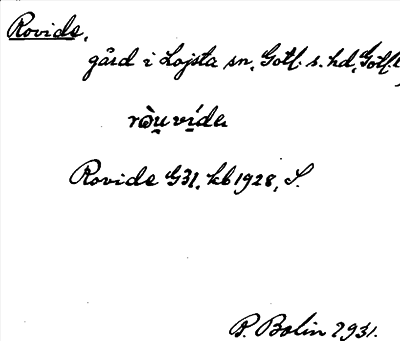 Rovide,
gård i Lojsta sn, Gotl. s. hd, Gotl. l
Rovide G31, kb 1928, S.
P. Bolin 1931.